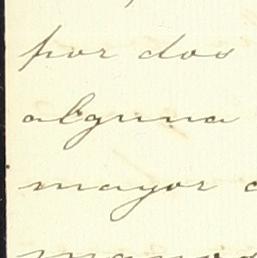 por dos
alguna
mayor